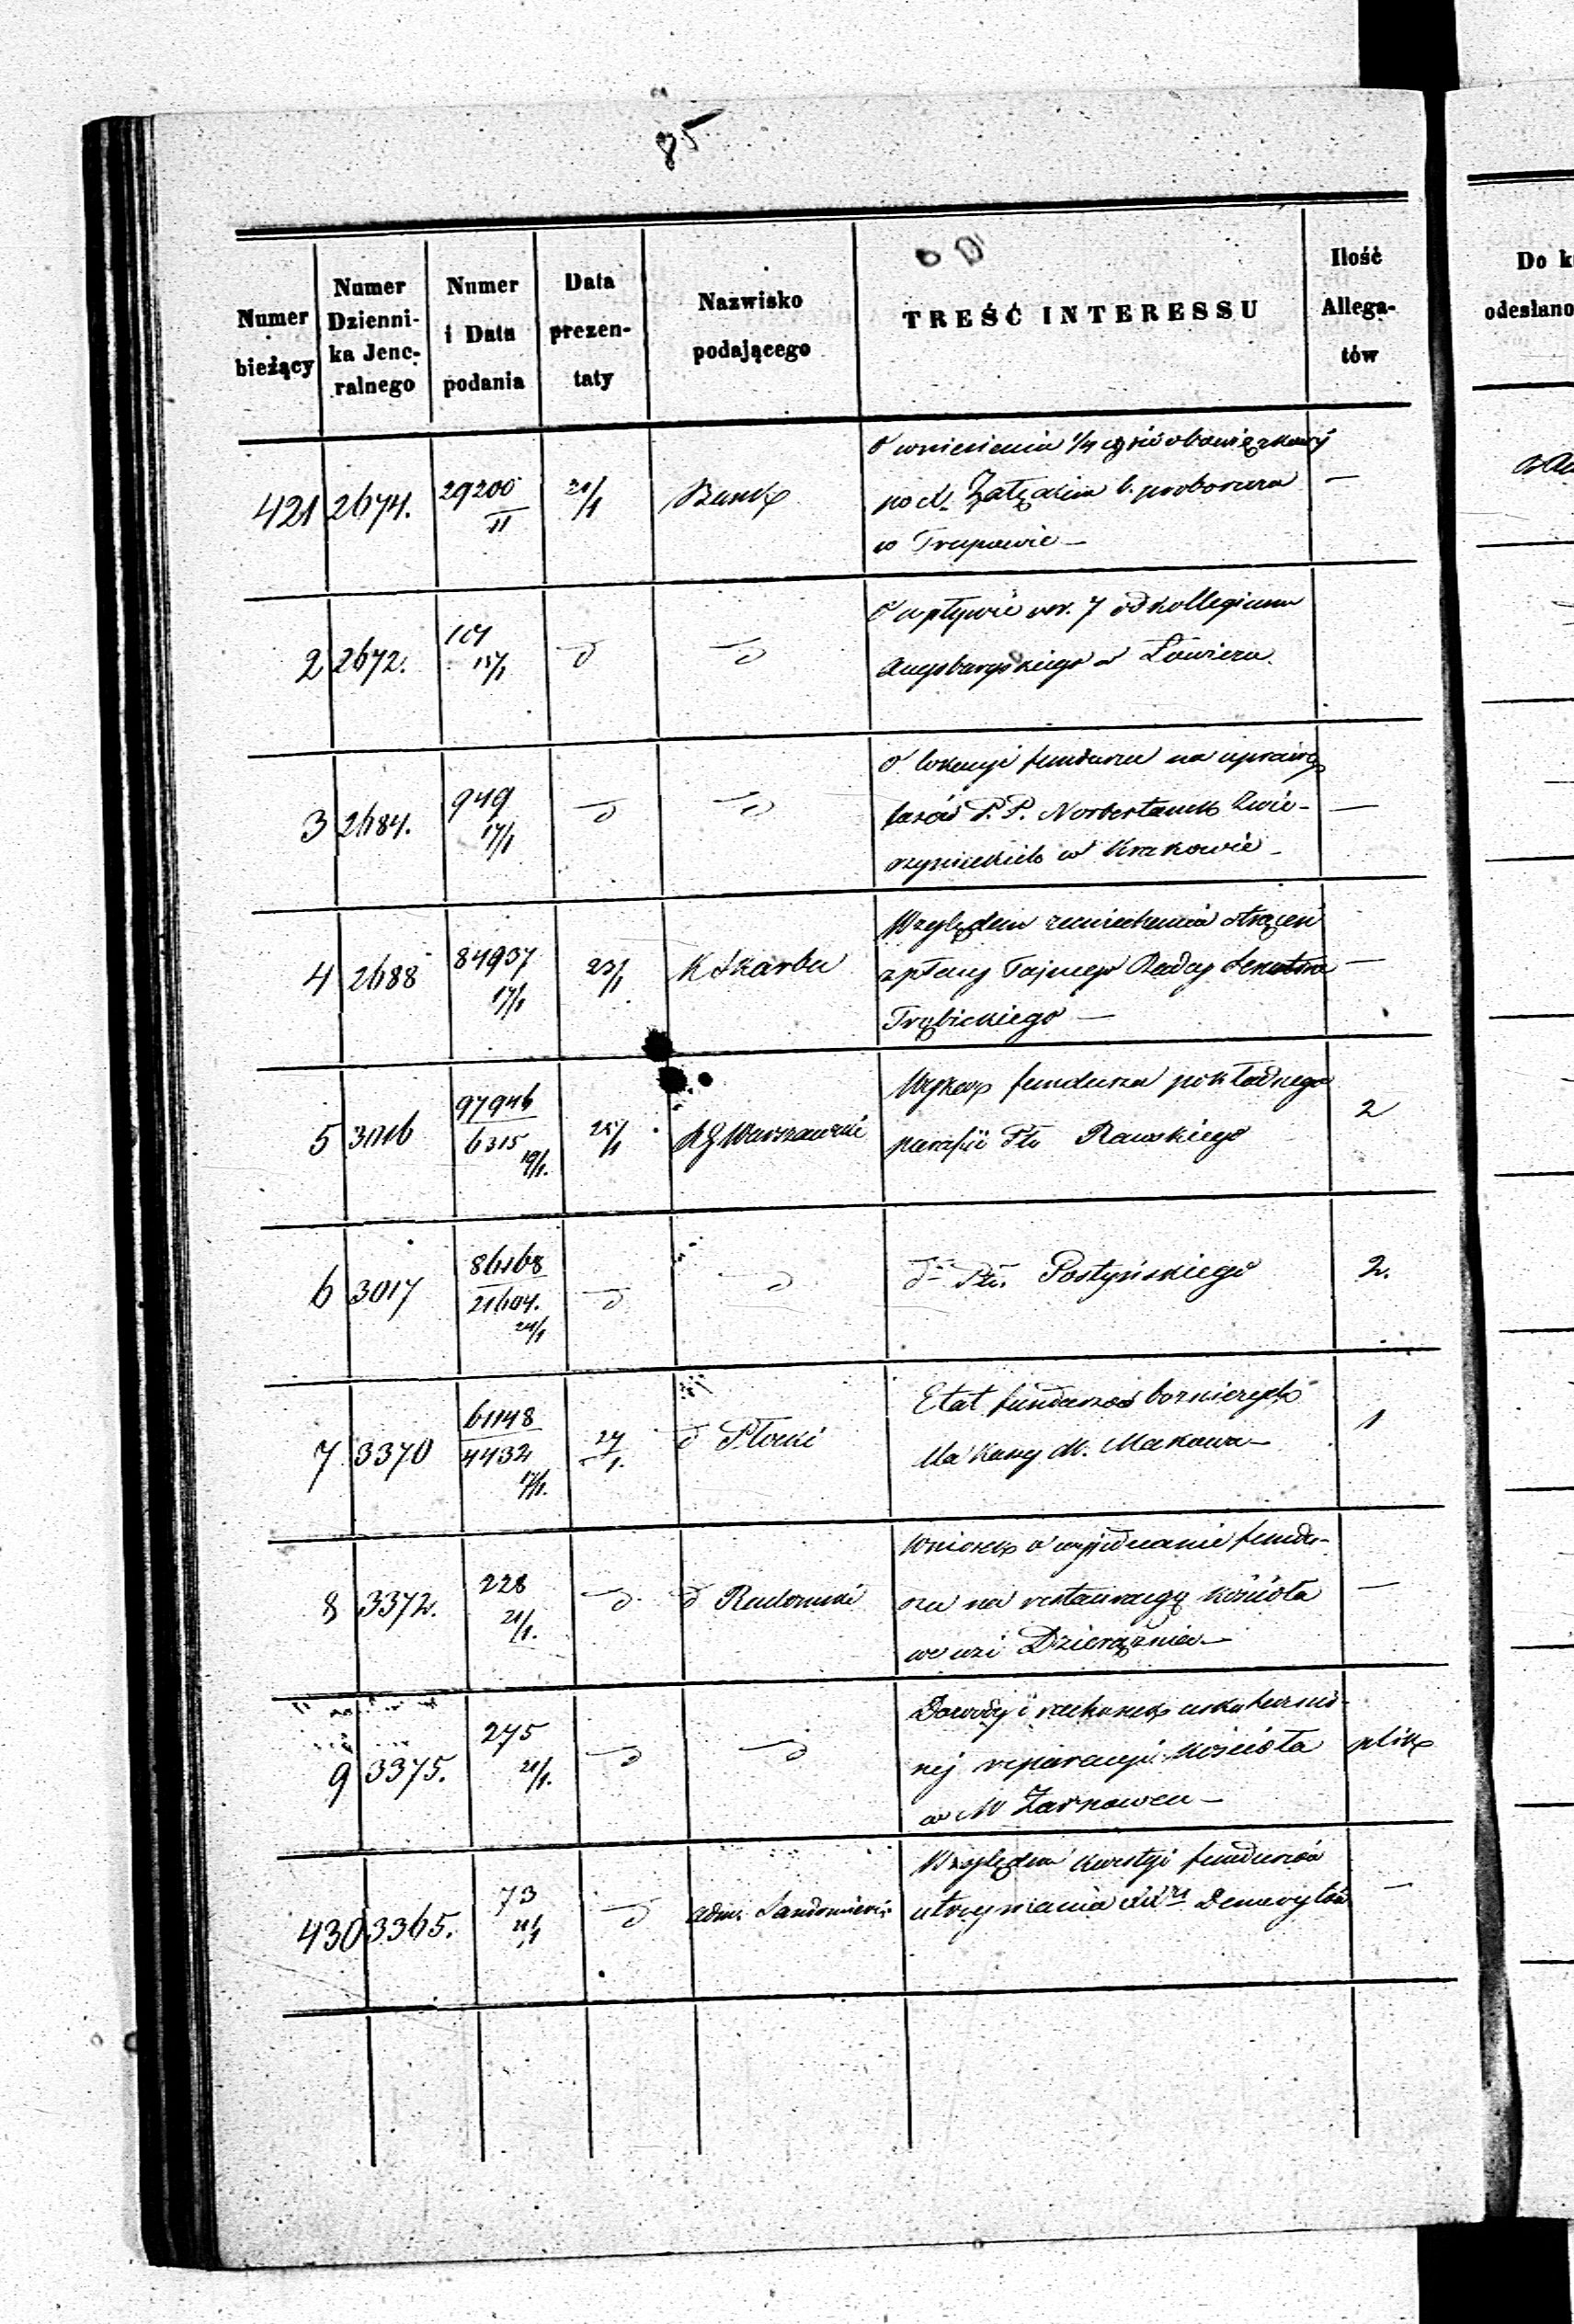 85
Numer bieżący
Numer Dzienni- ka Jene- ralnego
Numer i Data podania
Data prezen- taty
Nazwisko podającego
TREŚĆ INTERESSU
Ilość Allega- tów
Do k
odesłano
421 2674. 29200/II 21/1 Bank
O wniesienia 1/4 części obowiązkowéj —
po X.
b. proboszcza
w
2 2672. 107 15/1 d d
O wpływie rsr. 7 od kollegium
Augsburgskiego w Łowiczu.
3 2684. 949 17/1 d d
O lokacyi funduszu na uprawę
lasów P.P. Norbertanek Zwie- —
rzynieckich w Krakowie —
4 2688 84937 17/1 23/1 K Skarbu
Względem zaniechania strąceń
z płacy Tajnego Radcy Senatora —
Trębickiego —
5 3016 97946/6315 19/1. 25/1 RG Warszawski
Wykaz funduszu pokładnego 2
parafii Ptu Rawskiego
6 3017 86168/21604. 24/1 d d
d Ptu. Gostyńskiego 2.
7 3370 61148/4432 17/1. 27/1. d Płocki
Etat funduszów bożniczych 1
dla Kassy M. Makowa —
8 3372. 228 21/1. d d Radomski
Wniosek o wyjednanie fundu-
szu na restauracyę kościoła —
we wsi Dzierążnia —
9 3375. 275 21/1. d d
Dowody i rachunek uskutecznio-
nej reparacyi kościoła plik
w M Żarnowcu —
430 3365. 73 21/1 d Adm. Sandomiers.
Względem kwestyi funduszów
utrzymania Demerytów —